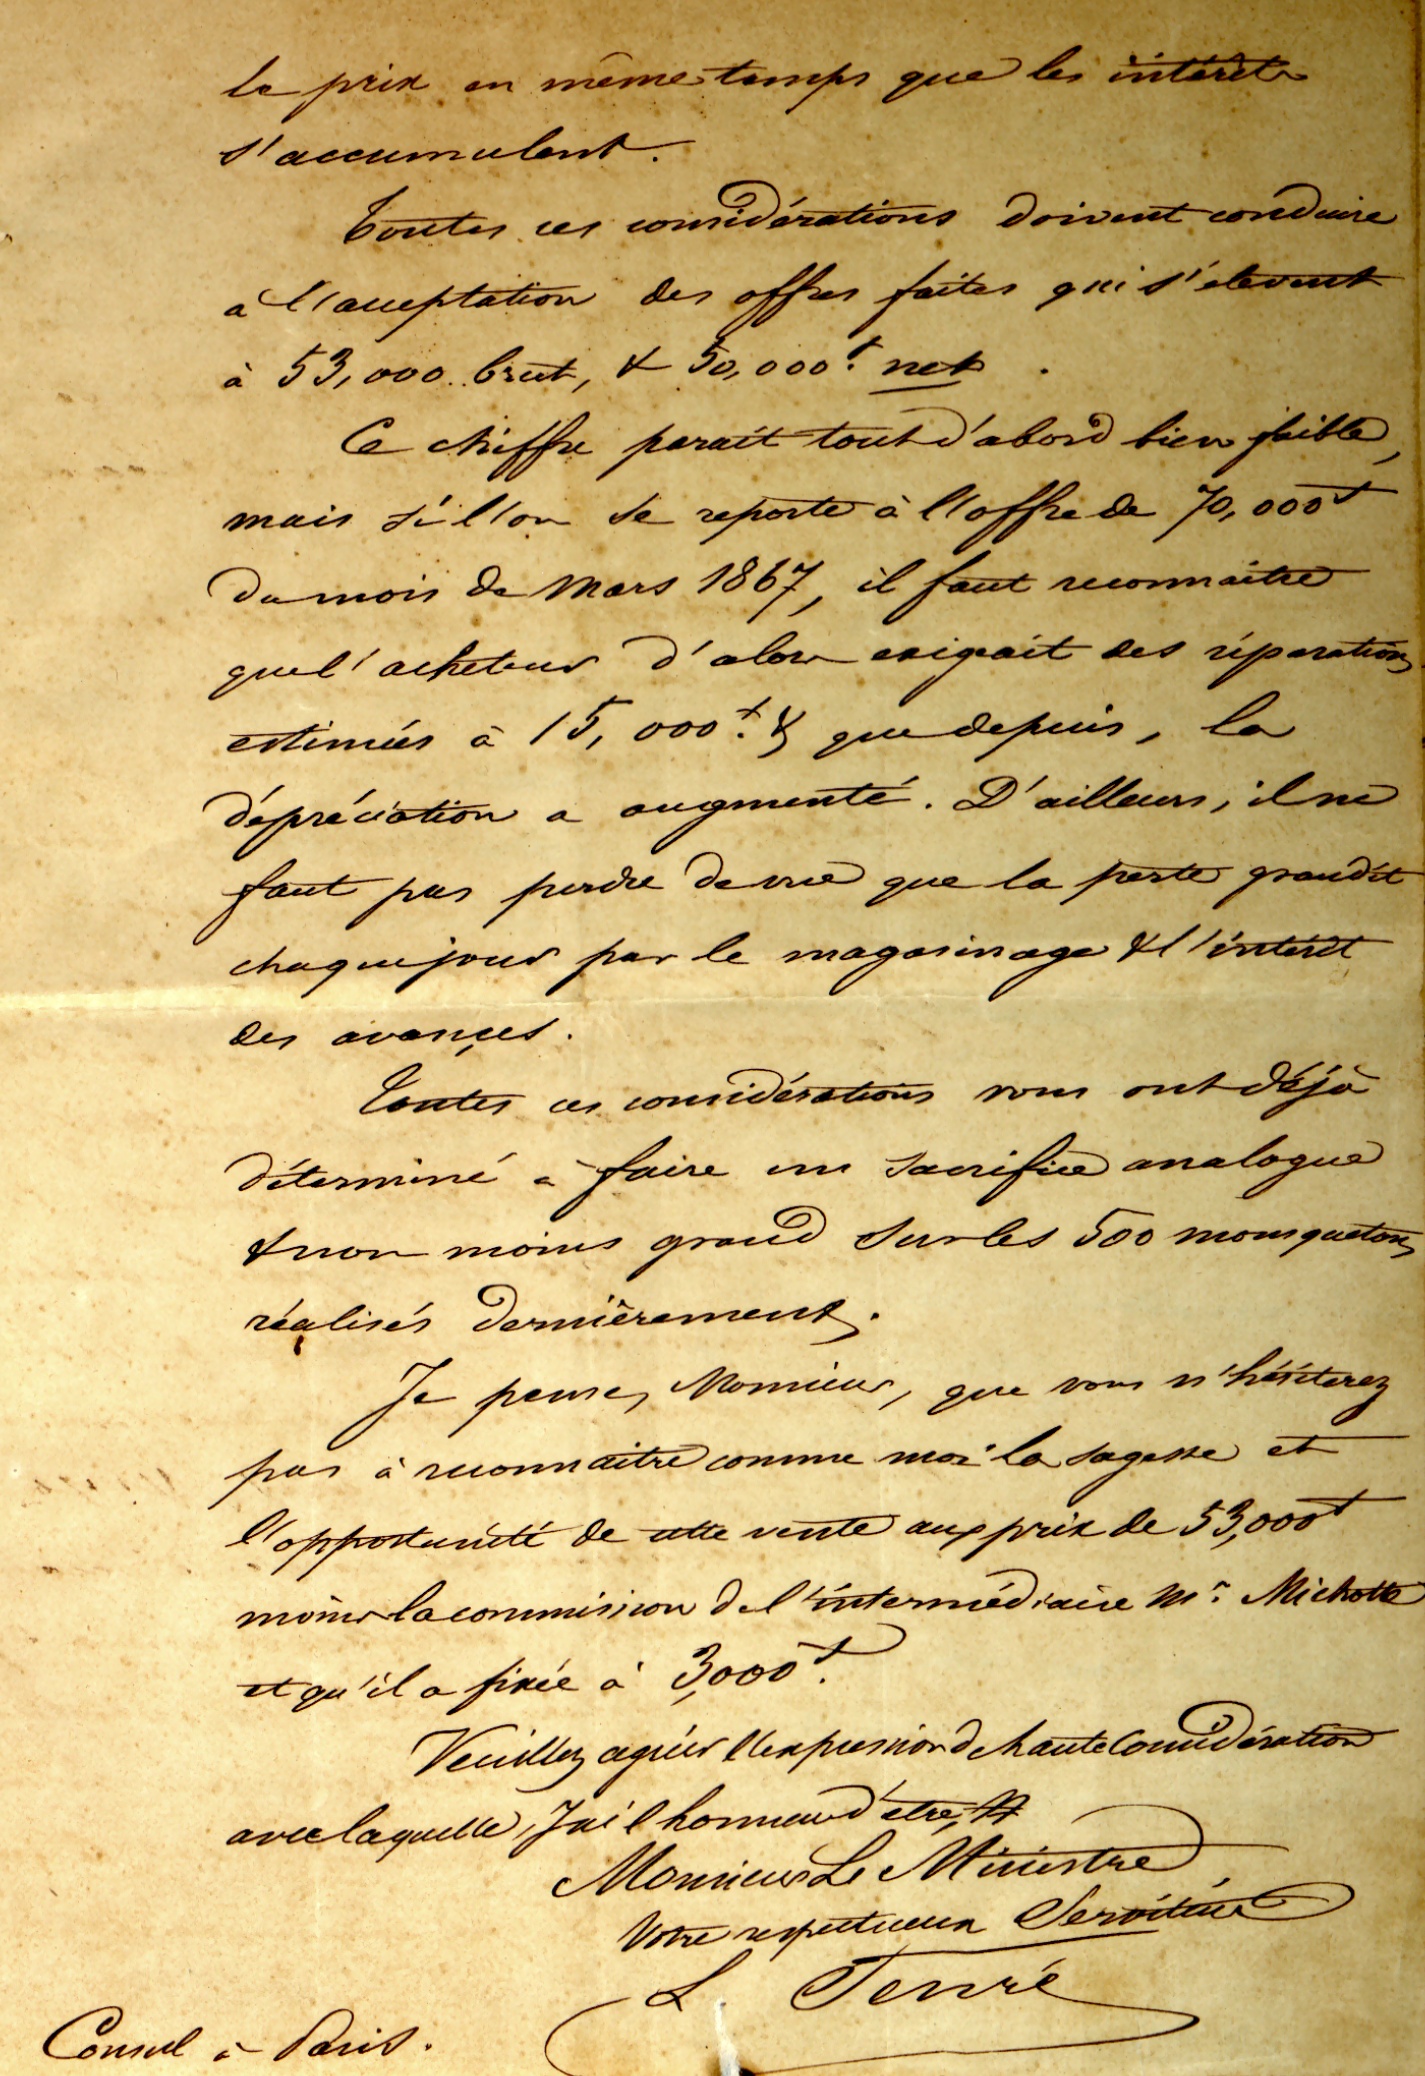 le prix en même temps que les intérêts
s'accumulent.
Toutes ces considérations doivent conduire
à l'acceptation des offres faites qui s'élevent
à 53,000 brut, & 50,000f. net.
Ce chiffre parait tout d'abord bien faible,
mais si l'on se reporte à l'offre de 70,000f
du mois de Mars 1867, il faut reconnaitre
que l'acheteur d'alors exigeait des réparations
estimées à 15,000f. & que depuis, la
dépréciation a augmenté. D'ailleurs, il ne
faut pas perdre de vue que la perte grandit
chaque jour par le magasinage & l'intérêt
des avances.
Toutes ces considérations vous ont déjà
déterminé à faire un sacrifice analogue
& non moins grand sur les 500 mousquetons
réalisés dernièrement.
Je pense, Monsieur, que vous n'hésiterez
pas à reconnaitre comme moi la sagesse et
l'opportunité de cette vente aux prix de 53,000f
moins la commission de l'intermédiaire Mr. Michotte
et qu'il a fixée à 3,000f.
Veuillez agréer l'expression de haute Considération
avec laquelle, J'ai l'honneur d'etre,
Monsieur Le Ministre
Votre respectueux Serviteur
L. Tenré
Consul à Paris.